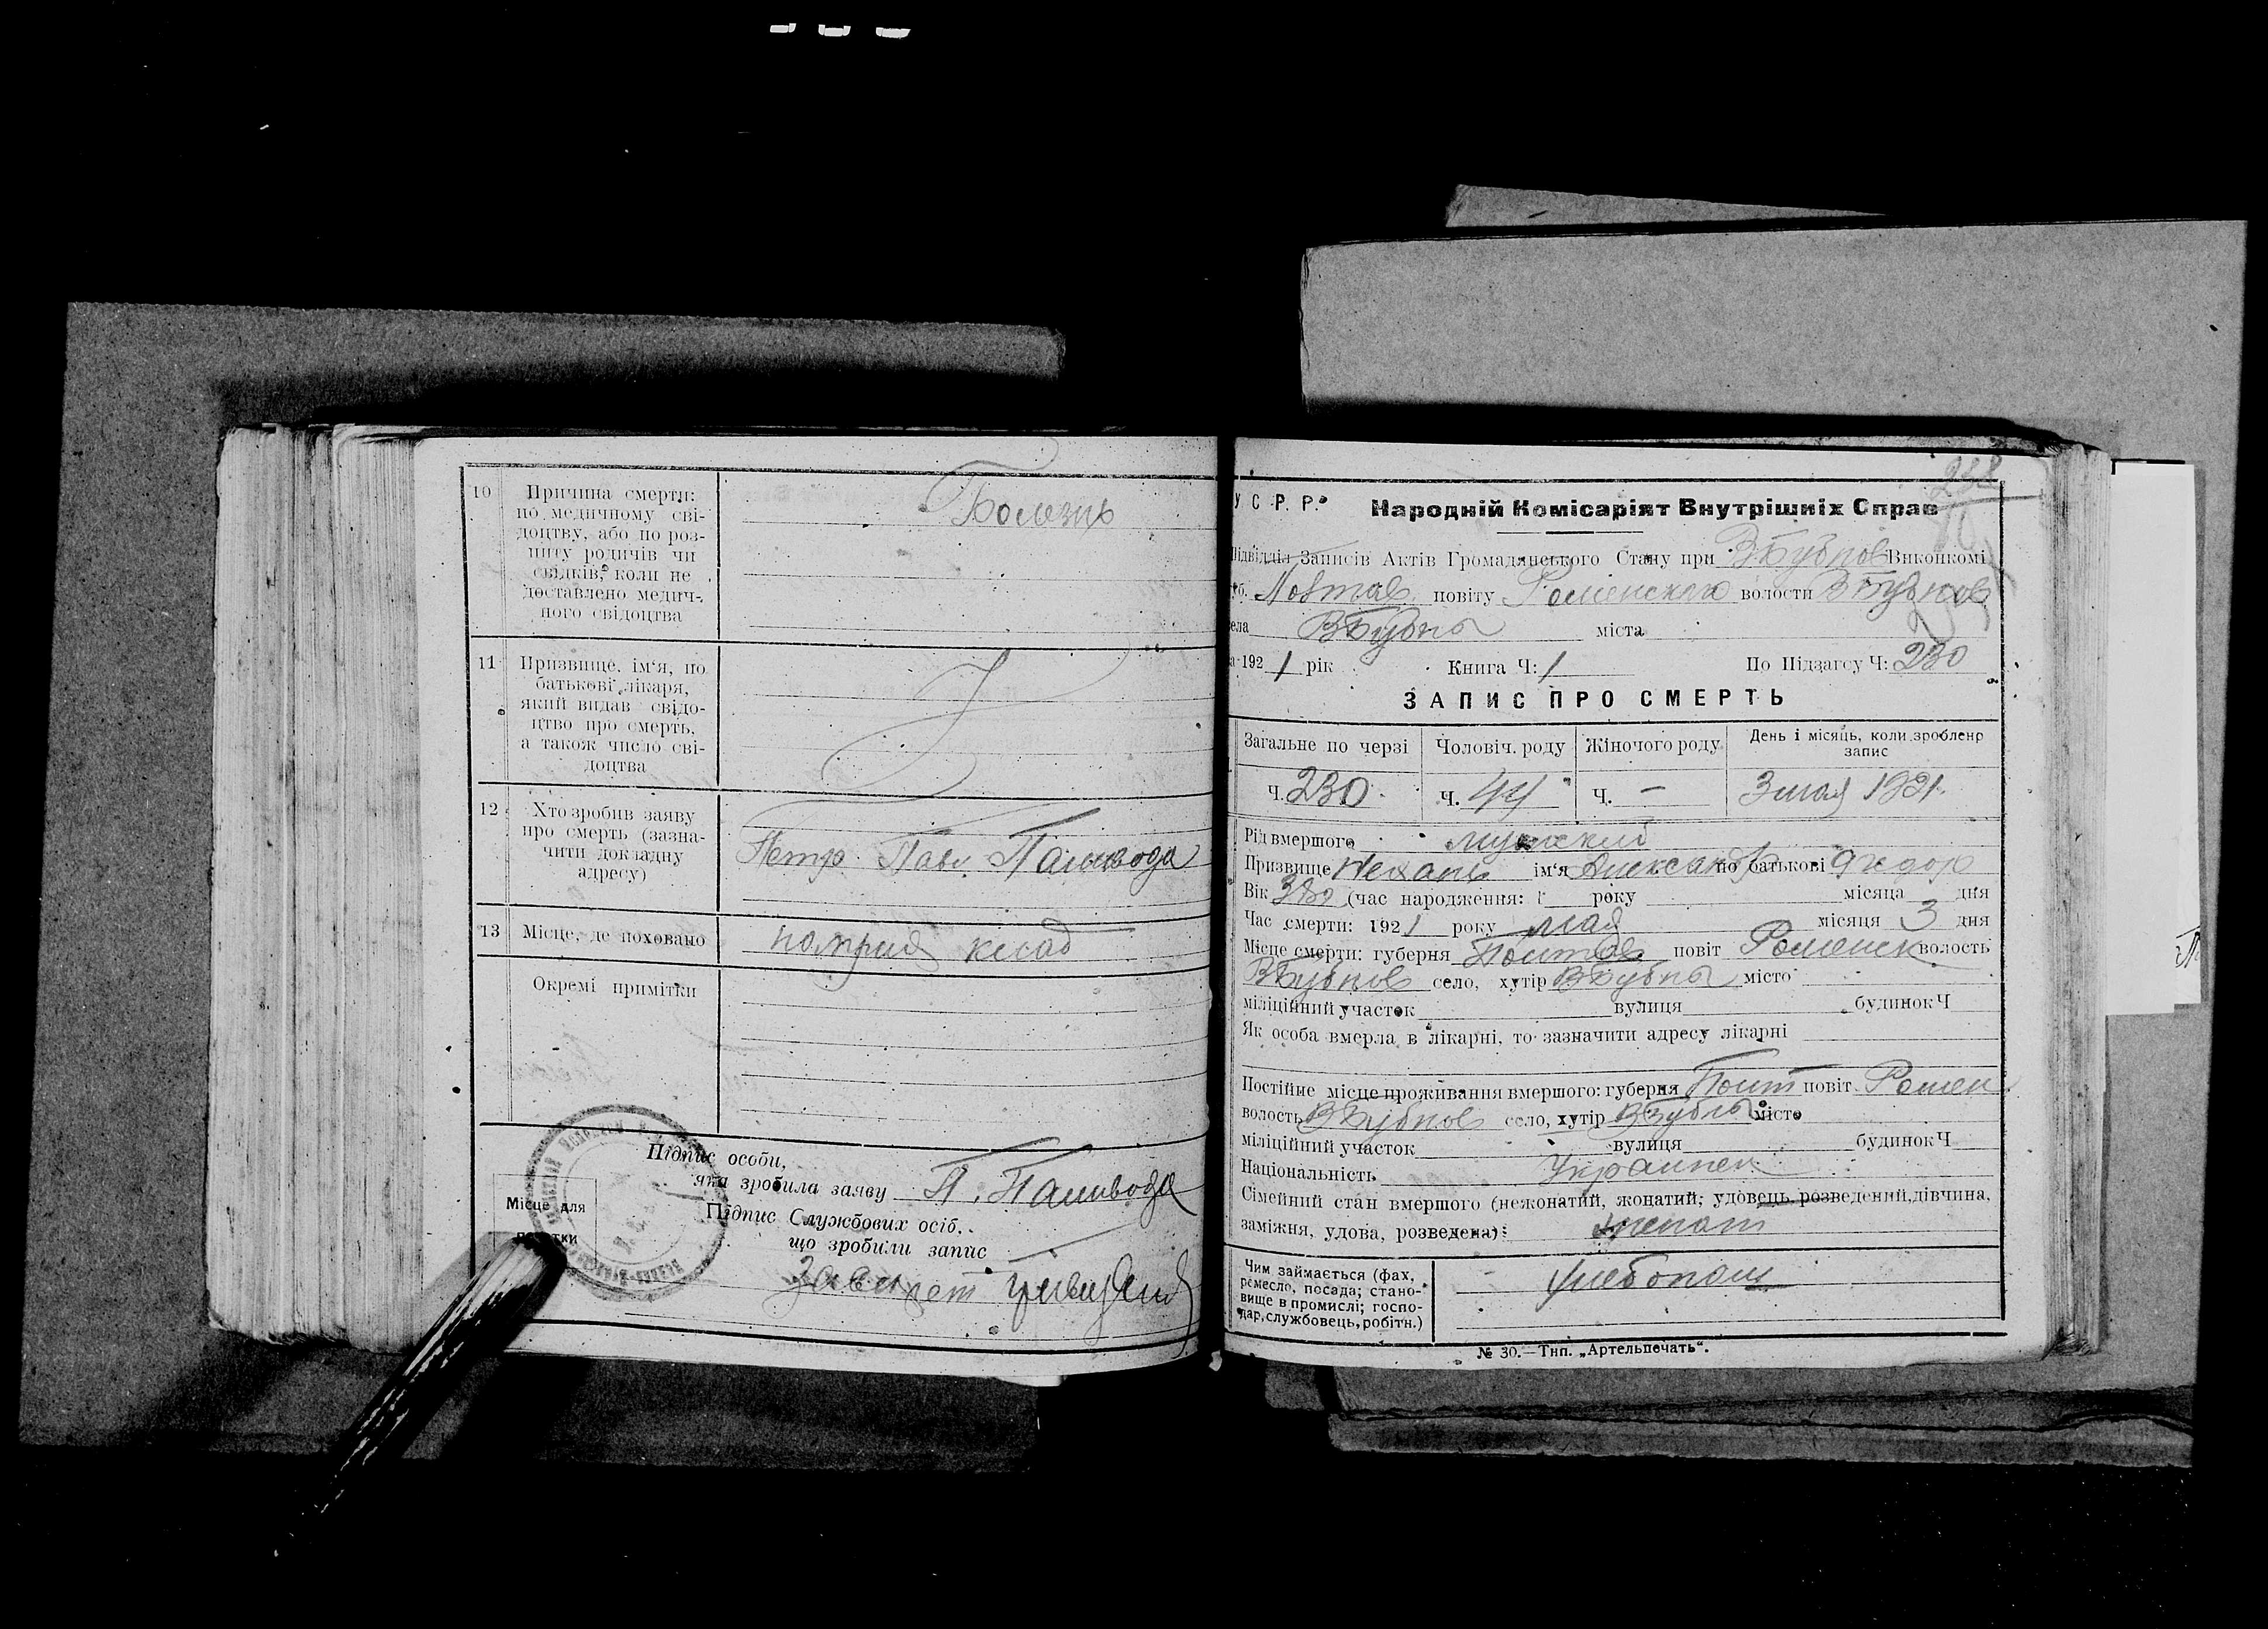 10 Причина смерти:
по медичному сві-
доцтву, або по роз-
питу родичів чи
свідків, коли не
доставлено медич-
ного свідоцтва
Болезнь
11 Призвище, ім'я, по
батькові лікаря,
який видав свідо-
цтво про смерть,
а також число сві-
доцтва
12 Хто зробив заяву
про смерть (зазна-
чити докладну
адресу)
Петр Павл. Паливода
13 Місце, де поховано
Окремі примітки
Підпис особи,
яка зробила заяву П. Паливода
Підпис Службових осіб,
що зробили запис
Місце для
У С Р. Р. Народній Комісаріят Внутрішніх Справ
Підвідділ Записів Актів Громадянського Стану при ВБубнов Виконкомі
повіту Роменского волости ВБубнов
села ВБубны міста
1921 рік Книга Ч: 1 По Підзагсу Ч: 230
ЗАПИС ПРО СМЕРТЬ
Загальне по черзі Чоловіч. роду Жіночого роду День і місяць, коли зроблено
запис
Ч. 230 Ч. 44 Ч. – 3 мая 1921
Рід вмершого мужский
Призвище ім'я Александр по батькові
Вік (час народження: 1 року місяца дня
Час смерти: 1921 року мая місяця 3 дня
Місце смерти: губерня Полтав повіт Роменск волость
ВБубнов село, хутір ВБубны місто
міліційний участок вулиця будинок Ч
Як особа вмерла в лікарні, то зазначити адресу лікарні
Постійне місце проживання вмершого: губерня Полт повіт Ромен
волость ВБубнов село, хутір ВБубны місто
міліційний участок вулиця будинок Ч
Національність Украинец
Сімейний стан вмершого (нежонатий, жонатий; удовець, розведений, дівчина,
заміжня, удова, розведена): женат
Чим займається (фах,
ремесло, посада; стано-
вище в промислі; госпо-
дар, службовець, робітн.)
Хлебопаш
№ 30.—Тип. „Артельпечать“.